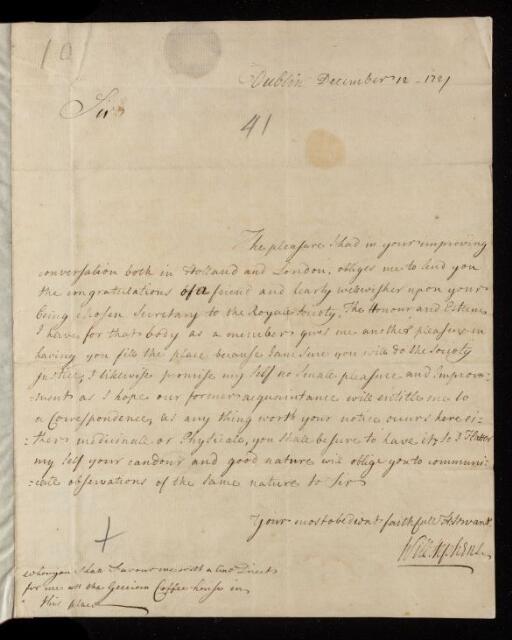 10
Dublin December 12 - 1721
Sir
41
The pleasure I had in your improving
conversation both in Holland and London, obliges me to send you
the congratulations of a friend and hearty wellwisher upon your
being chosen Secretary to the Royale Society, The Honour and Esteem
I have for that body as a member gives me another pleasure in
having you fill the place because I am sure you will do the Society
Justice, I likewise promise my self no small pleasure and improve-
-ment as I hope our former acquaintance will entitle me to
a Correspondence, as any thing worth your notice occurs here ei-
-ther medicinale or Physicale, you shall be sure to have it, so I flatter
my self your candour and good nature will oblige you to communi-
-cate observations of the same nature to Sir
Your most obedient faithfull Servant
Will: Stephens
when you shall favour me with a line Direct
for me att the Grecian Coffee house in
this place